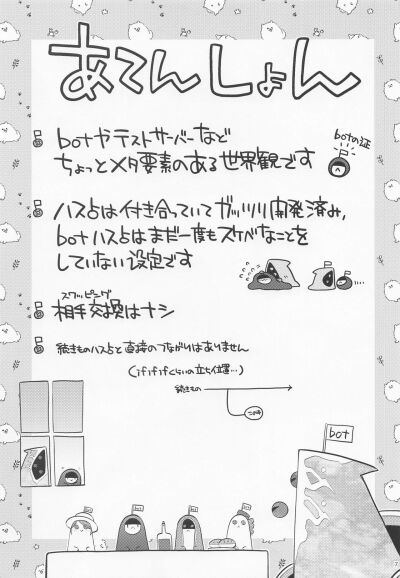 あてんしょん
botやテストサーバーなど
ちょっとメタ要素のある世界観です
botの証
ハス占は付き合っていてガッツリ開発済み,
botハス占はまだ一度もスケベなことを
していない設定です
スワッピング
相手交換はナシ
続きものハス占と直接のつながりはありません
(ifififくらいの立ち位置…)
続きもの
この本
bot